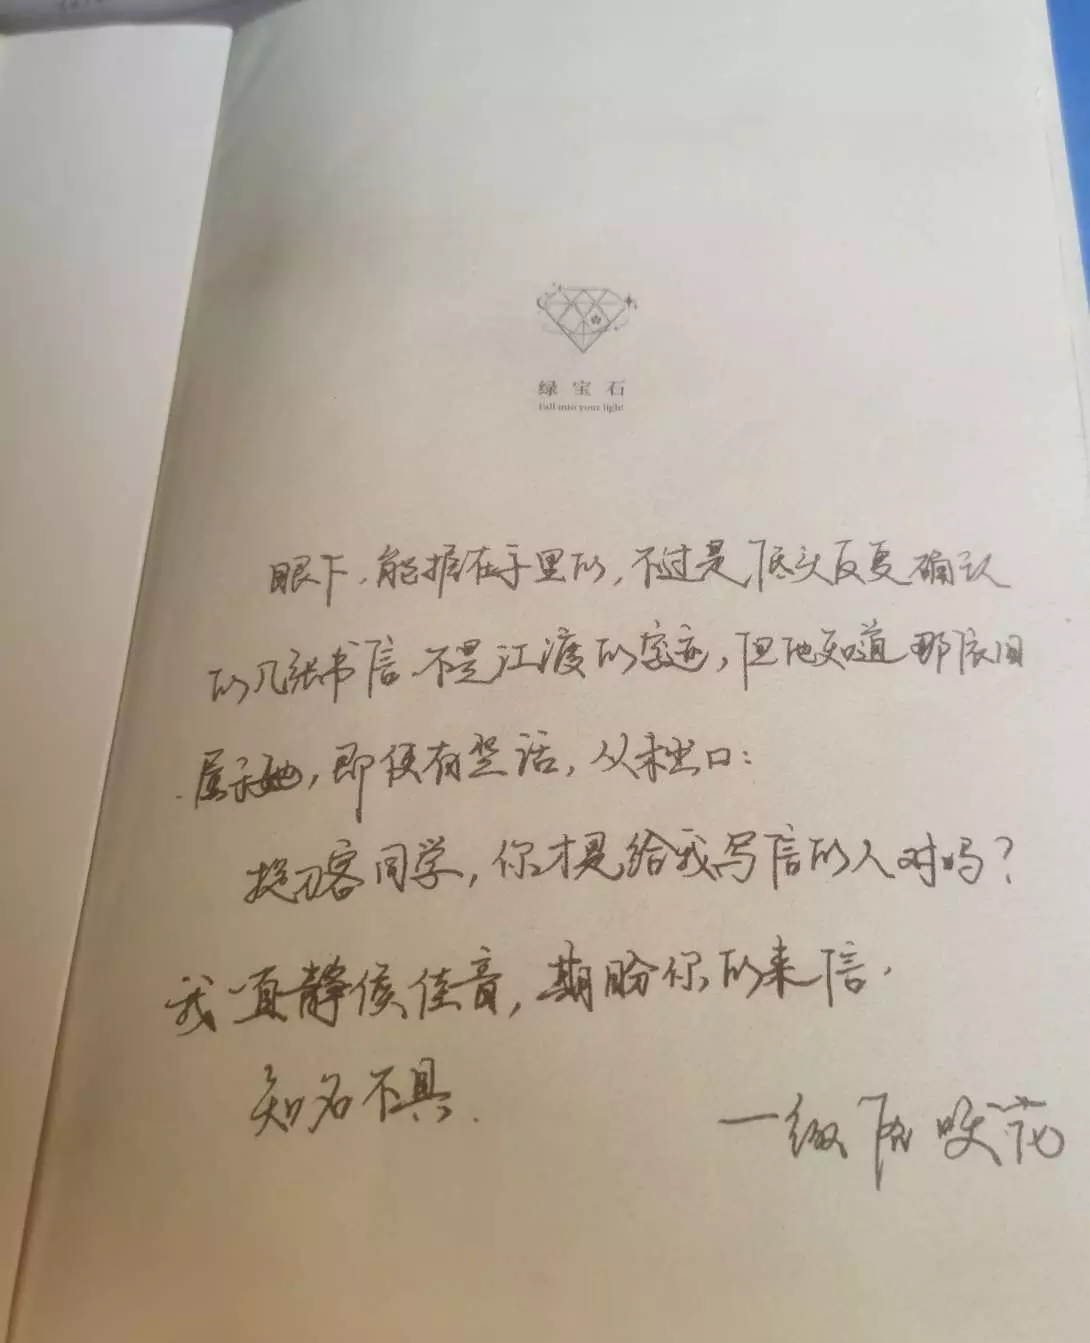 绿宝石
Fall into your light
眼下，能握在手里的，不过是低头反复确认
的几张书信。不是江渡的字迹，但他知道那依旧
属于她，即便有些话，从未出口：
抱刀客同学，你才是给我写信的人对吗？
我一直静候佳音，期盼你的来信。
知名不具.
一